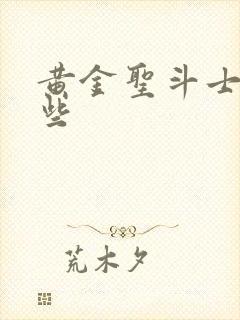 黄金聖斗士
些
荒木夕